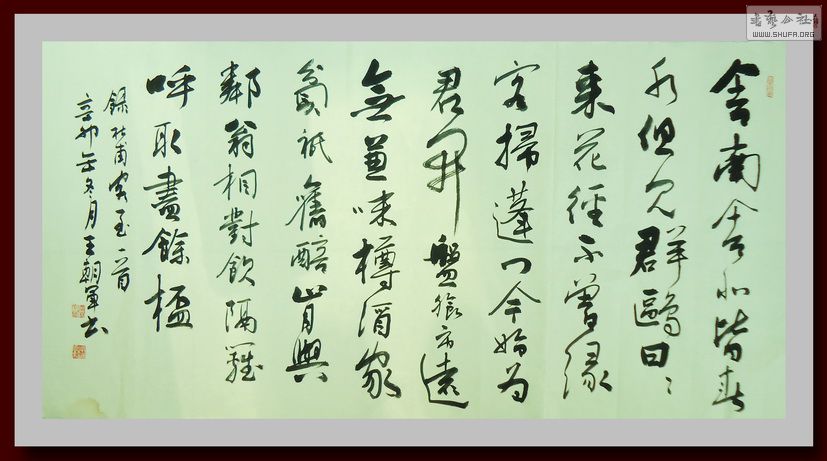 書藝公社
WWW.SHUFA.ORG
舍南舍北皆春
水但見群鷗日〻
來花徑不曾緣
客掃蓬門今始為
君開盤飧市遠
無兼味樽酒家
貧祇舊醅肯與
鄰翁相對飲隔籬
呼取盡餘杯
錄杜甫客至一首
辛卯年冬月王朝軍書